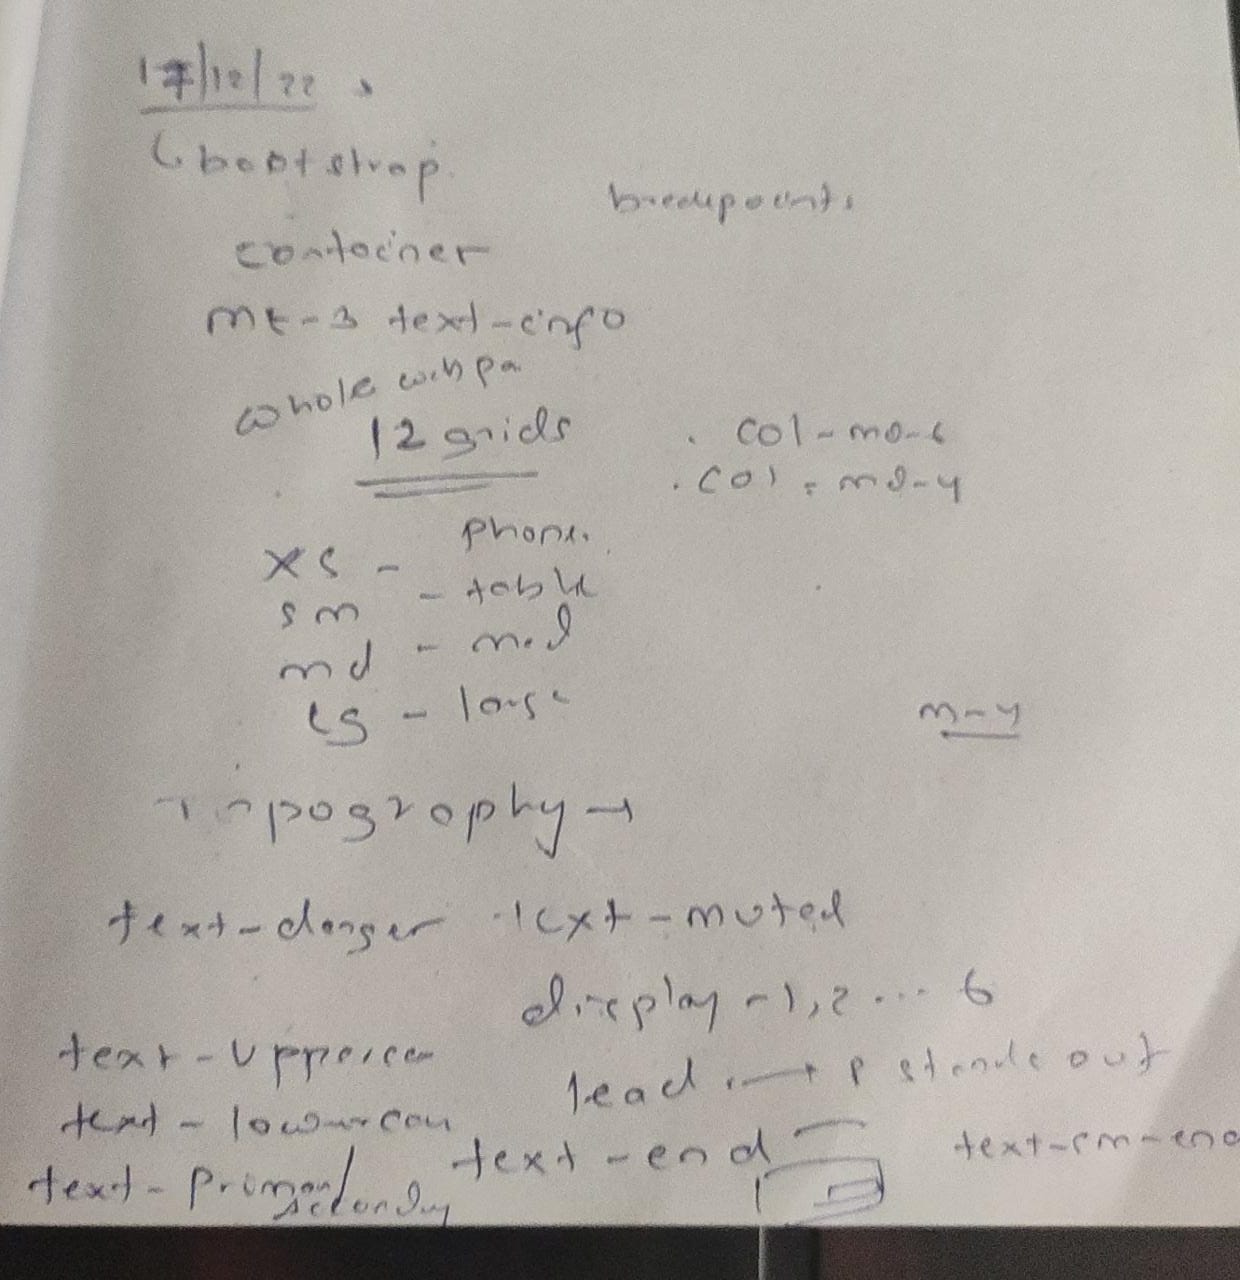 17/12/22
bootstrap
breakpoints
container
mt-3 text-info
whole webpa
12 grids
. col-md-6
. col-md-4
xs - phone
sm - table
md - med
lg - large
m-4
Typography →
text-danger text-muted
display-1,2 ... 6
text-uppercase
lead → p stands out
text-lowercase
text-end
text-sm-end
text-primary/
secondary